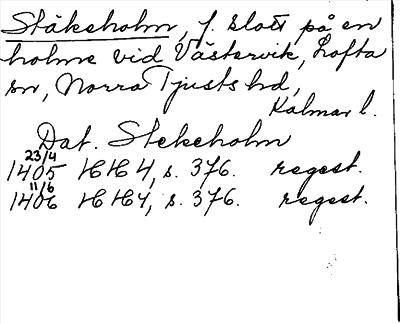 Stäkeholm, f. slott på en
holme vid Västervik, Lofta
sn, Norra Tjusts hd,
Kalmar l.
Dat. Stekeholm
23/4
1405 HH 4, s. 376. regest.
11/6
1406 HH 4, s. 376. regest.